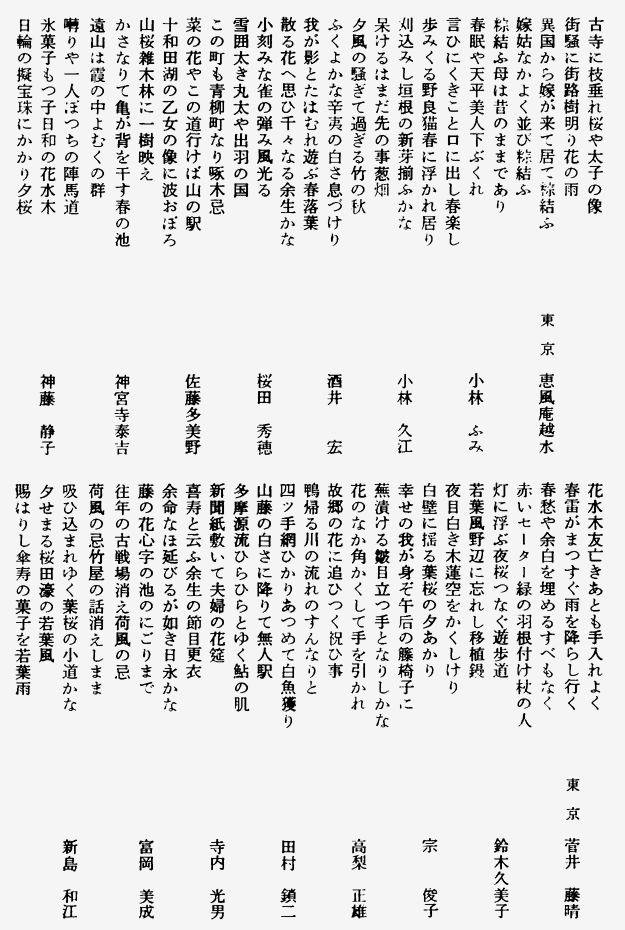 古寺に枝垂れ桜や太子の像
街騒に街路樹明り花の雨
異国から嫁が来て居て粽結ふ
東京 恵風庵越水
嫁姑なかよく並び粽結ふ
粽結ふ母は昔のままであり
春眠や天平美人下ぶくれ
小林 ふみ
言ひにくきこと口に出し春楽し
歩みくる野良猫春に浮かれ居り
刈込みし垣根の新芽揃ふかな
小林 久江
呆けるはまだ先の事葱畑
夕風の騒ぎて過ぎる竹の秋
ふくよかな辛夷の白さ息づけり
酒井 宏
我が影とたはむれ遊ぶ春落葉
散る花へ思ひ千々なる余生かな
小刻みな雀の弾み風光る
桜田 秀穂
雪囲太き丸太や出羽の国
この町も青柳町なり啄木忌
菜の花やこの道行けば山の駅
佐藤多美野
十和田湖の乙女の像に波おぼろ
山桜雑木林に一樹映え
かさなりて亀が背を干す春の池
神宮寺泰吉
遠山は霞の中よむくの群
囀りや一人ぼつちの陣馬道
氷菓子もつ子日和の花水木
神藤 静子
日輪の擬宝珠にかかり夕桜
花水木友亡きあとも手入れよく
春雷がまつすぐ雨を降らし行く
東京 菅井 藤晴
春愁や余白を埋めるすべもなく
赤いセーター緑の羽根付け杖の人
灯に浮ぶ夜桜つなぐ遊歩道
鈴木久美子
若葉風野辺に忘れし移植鏝
夜目白き木蓮空をかくしけり
白壁に揺る葉桜の夕あかり
宗 俊子
幸せの我が身ぞ午后の籐椅子に
蕪漬ける皺目立つ手となりしかな
花のなか角かくして手を引かれ
高梨 正雄
故郷の花に追ひつく祝ひ事
鴨帰る川の流れのすんなりと
四ツ手網ひかりあつめて白魚獲り
田村 鎖二
山藤の白さに降りて無人駅
多摩源流ひらひらとゆく鮎の肌
新聞紙敷いて夫婦の花筵
寺内 光男
喜寿と云ふ余生の節目更衣
余命なほ延びるが如き日永かな
藤の花心字の池のにごりまで
富岡 美成
往年の古戦場消え荷風の忌
荷風の忌竹屋の話消えしまま
吸ひ込まれゆく葉桜の小道かな
新島 和江
夕せまる桜田濠の若葉風
賜はりし傘寿の菓子を若葉雨